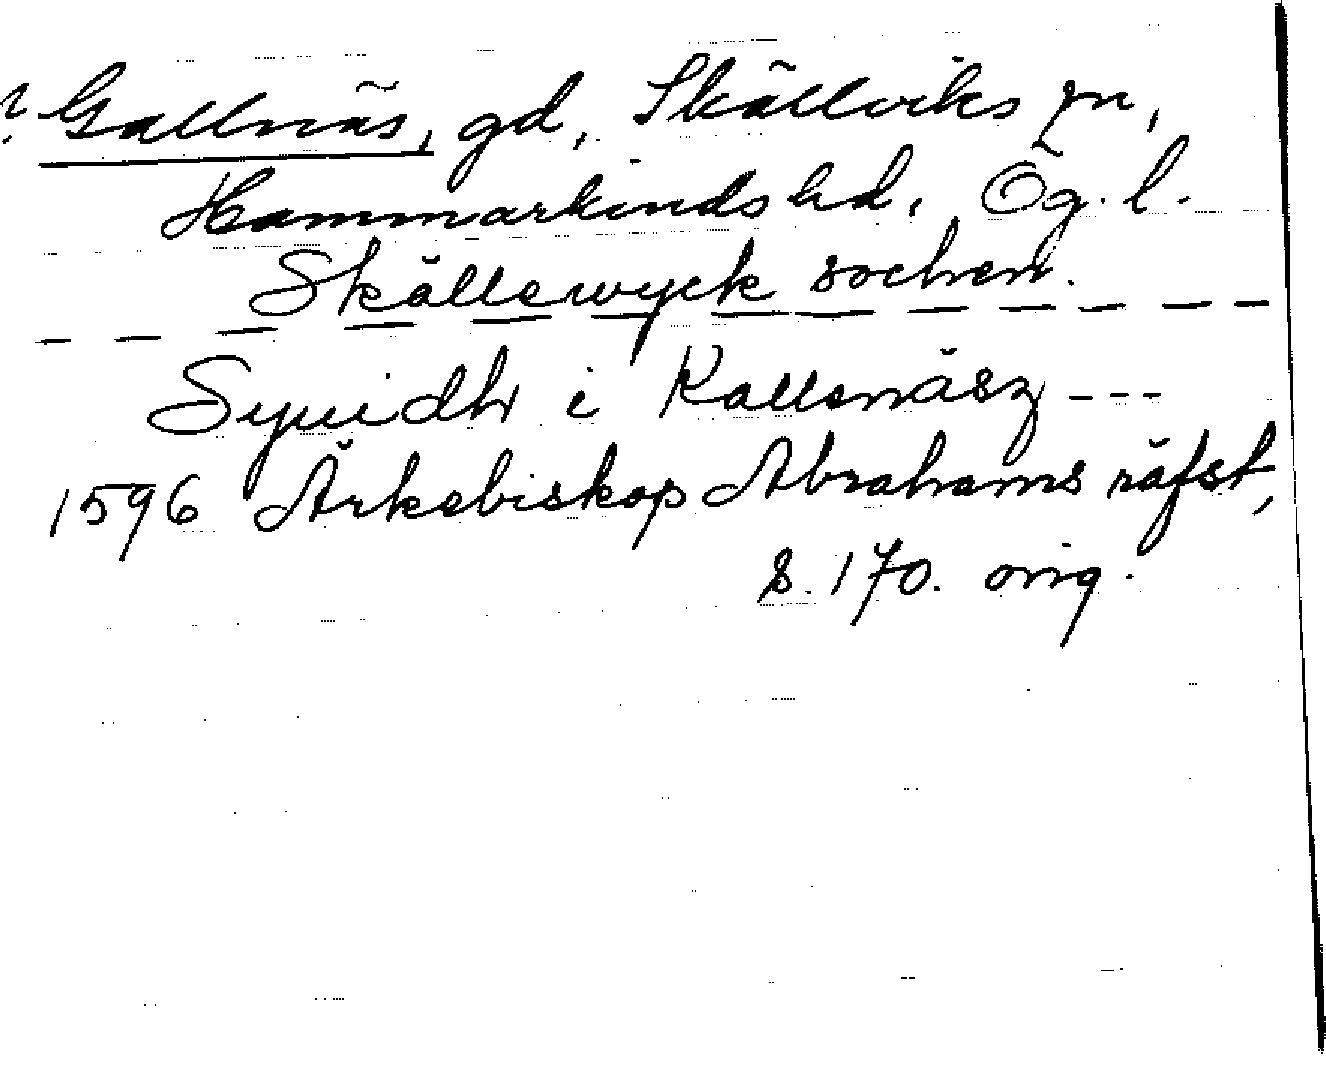 ? Gallnäs, gd, Skällviks sn,
Hammarkinds hd, Ög. l.
Skällewyck sochen.
– – – – – – – – – – – –
i Kallenäsz - - -
1596 Ärkebiskop Abrahams räfst,
s. 170. orig.